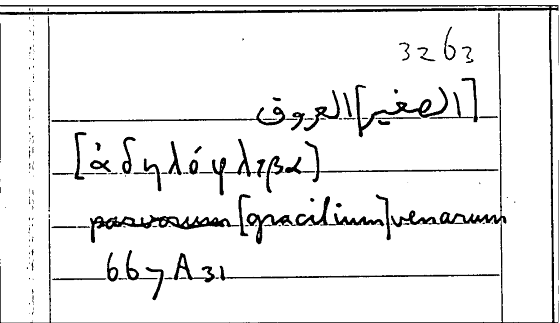 3263
[الصغير]العروق
[ἀδηλόφλεβα]
parvorum [gracilium] venarum
667 A 31